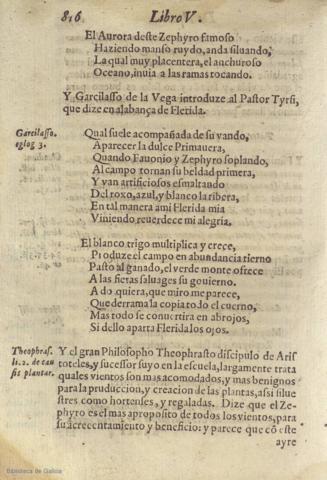 816 Libro V.
El Aurora deste Zephyro famoso
Haziendo manso ruydo, anda siluando,
La qual muy placentera, el anchuroso
Oceano, inuia a las ramas tocando.
Y Garcilasso de la Vega introduze al Pastor Tyrsi,
que dize en alabança de Flerida.
Garcilasso.
eglog 3.
Qual suele acompañada de su vando,
Aparecer la dulce Primauera,
Quando Fauonio y Zephyro soplando,
Al campo tornan su beldad primera,
Y van artificiosos esmaltando
De roxo, azul, y blanco la ribera,
En tal manera a mi Flerida mia
Viniendo reuerdece mi alegria.
El blanco trigo multiplica y crece,
Produze el campo en abundancia tierno
Pasto al ganado, el verde monte ofrece
A las fieras saluages su gouierno.
A do quiera, que miro me parece,
Que derrama la copia todo el cuerno,
Mas todo se conuertira en abrojos,
Si dello aparta Flerida los ojos.
Theophras.
li. 2. de cau
sis plantar.
Y el gran Philosopho Theophrasto discipulo de Aris
toteles, y successor suyo en la escuela, largamente trata
quales vientos son mas acomodados, y mas benignos
para la produccion, y creacion de las plantas, assi silue
stres como hortenses, y regaladas. Dize que el Ze-
phyro es el mas aproposito de todos los vientos, para
su acrecentamiento y beneficio: y parece que có este
ayre
Biblioteca de Galicia